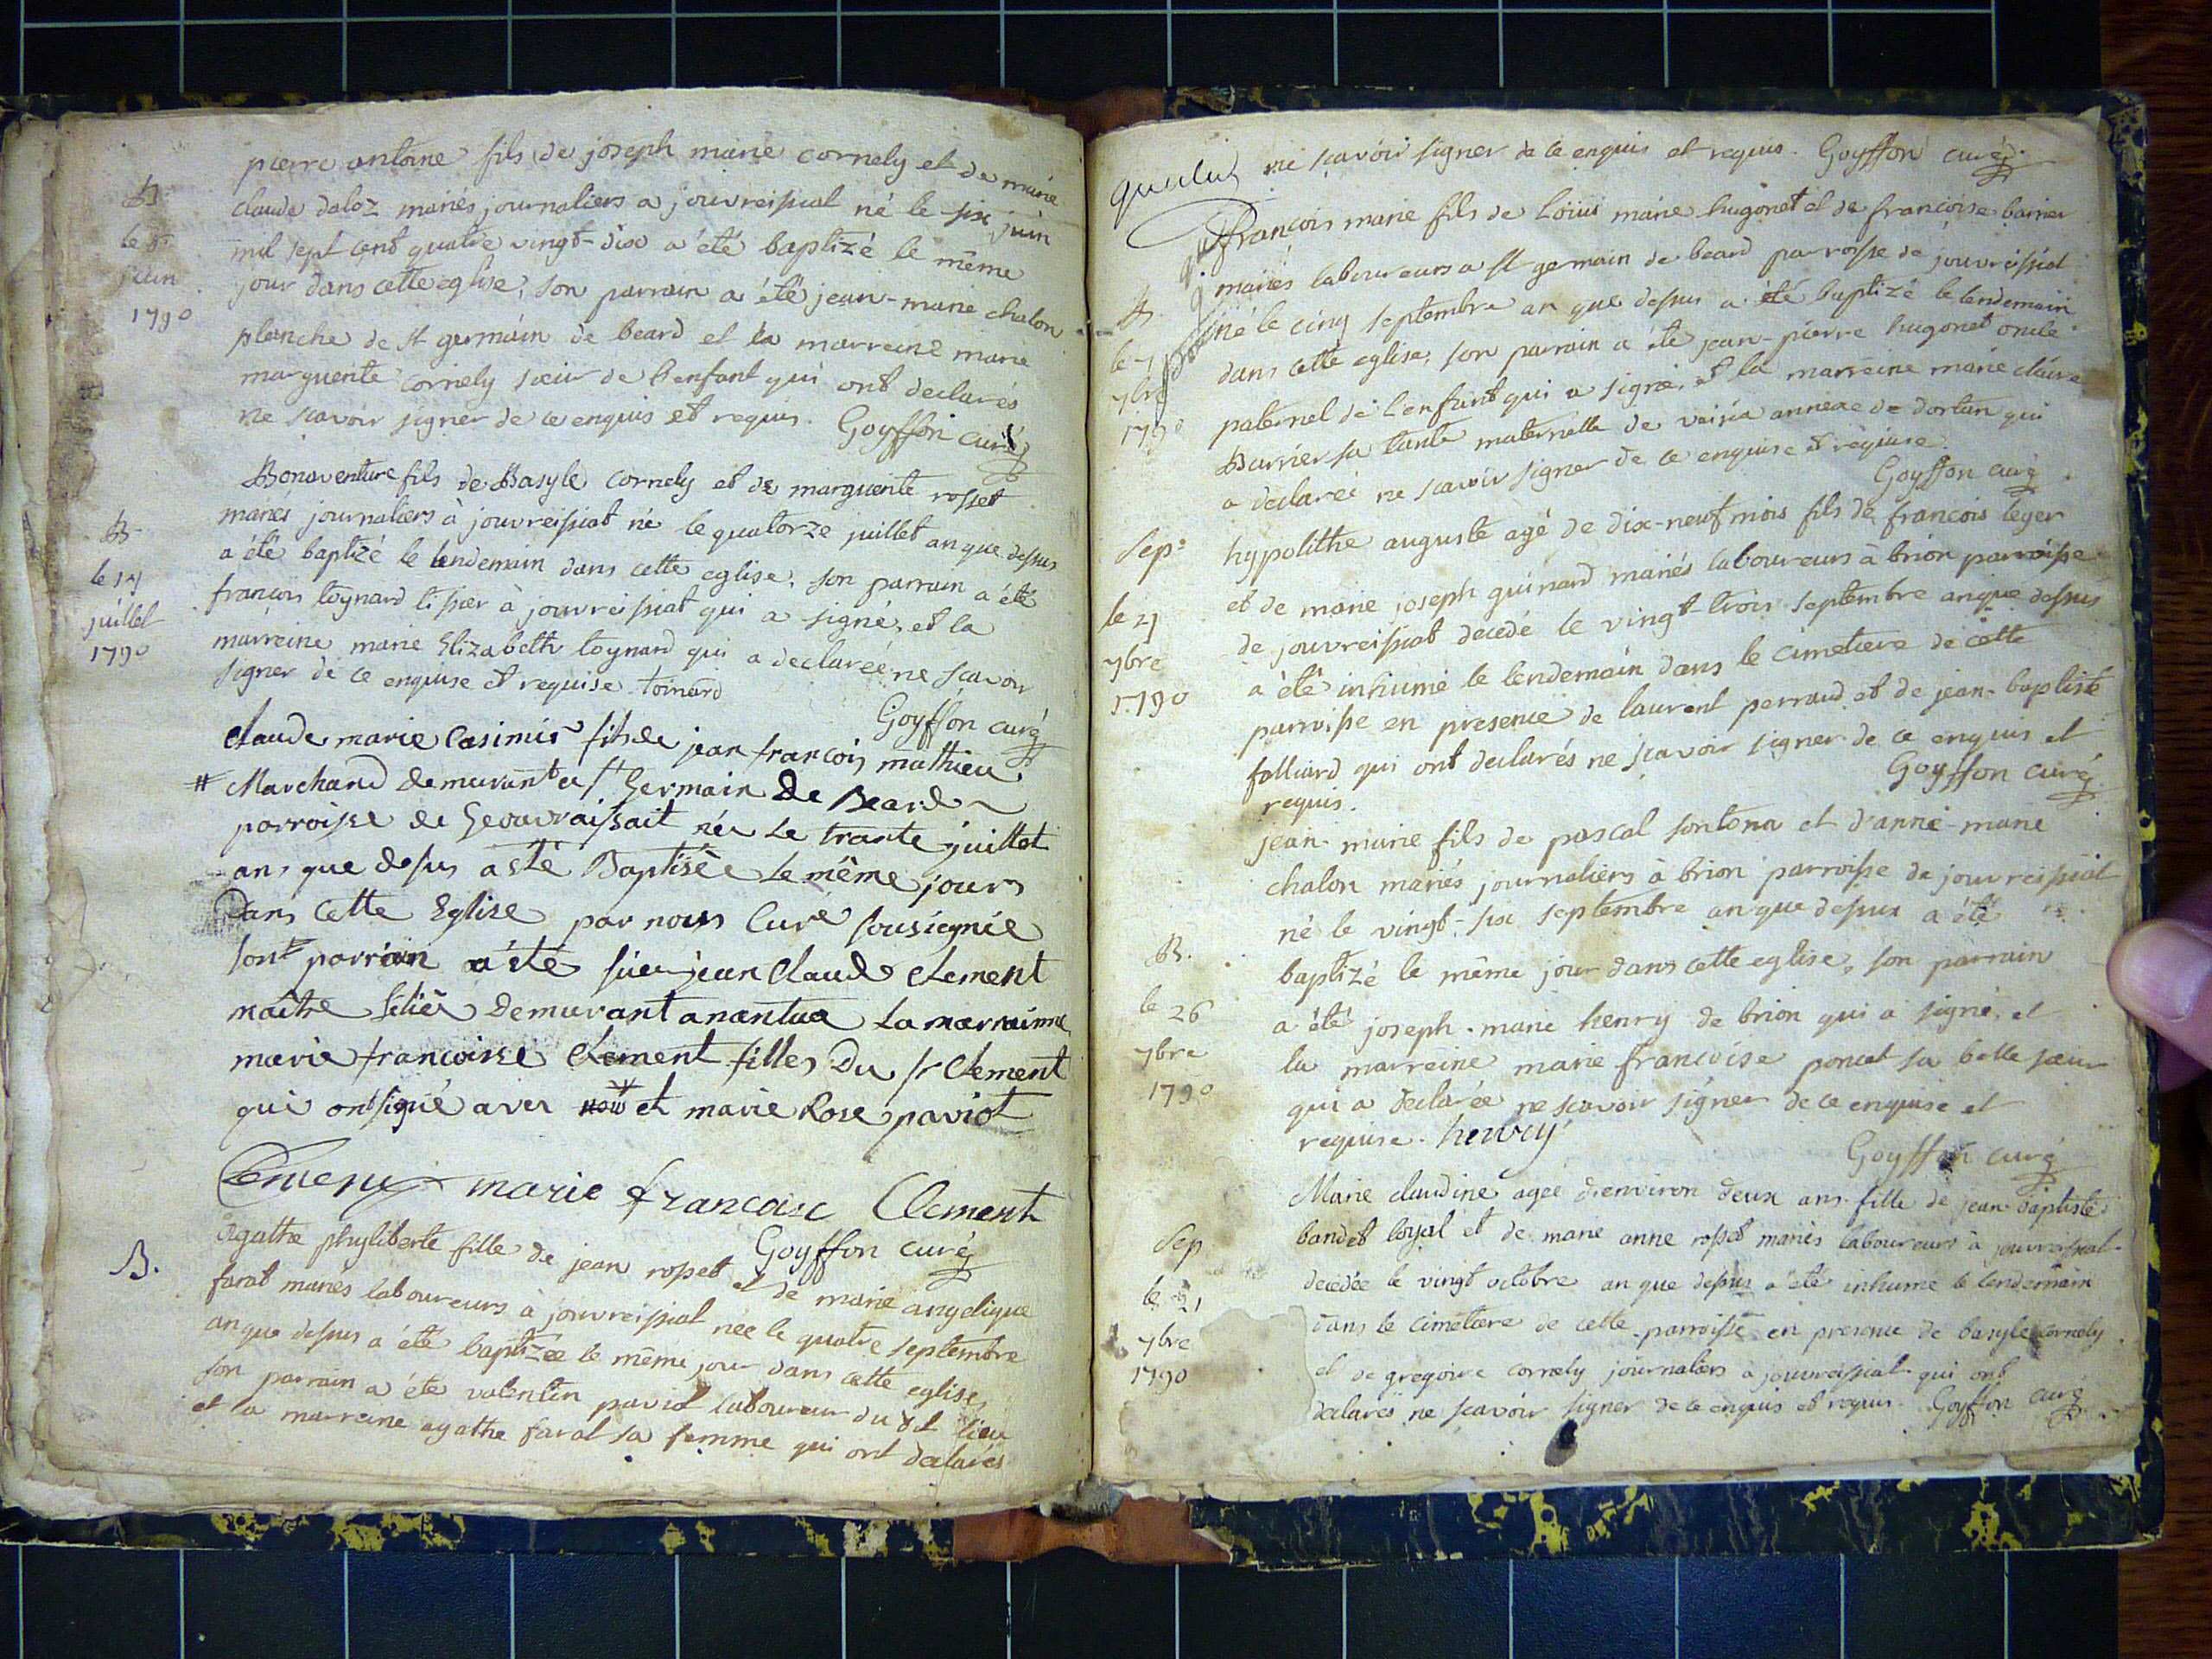 pierre antoine fils de joseph marie cornely et de marie
B
claude daloz mariés journaliers a jouvreissiat né le six juin
le 6
mil sept cent quatre vingt-dix a été baptizé le même
juin
jour dans cette eglise, son parrain a été jean-marie chalon
1790
planche de st germain de beard et la marreine marie
marguerite cornely sœur de l'enfant qui ont declarés
ne scavoir signer de ce enquis et requis. Goyffon curé
Bonaventure fils de Basyle cornely et de marguerite rosset
B
mariés journaliers à jouvreissiat né le quatorze juillet an que dessus
a été baptizé le lendemain dans cette eglise, son parrain a été
le 14
françois toynard tissier à jouvreissiat qui a signé, et la
juillet
marreine marie Elizabeth toynard qui a declarée ne scavoir
1790
signer de ce enquise et requise. toinard
Goyffon curé
claude marie Casimir fils de jean françois mathieu
# Marchand demurant a st Germain de Beard
parroisse de Geouvraissait née Le trante juillet
ans que desus a sté Baptisèe Le même jours
Dans Cette Eglise par nous Curé sousignié
sont parrain a été sieur jean Claude Clement
maitre sélier Demurant a nantua La marrainne
marie francoisse Clement filles Du sr Clement
qui ont signé avec nou # et marie Rose paviot
Clement marie francoise Clement
Goyffon curé
B.
Agathe phyliberte fille de jean rosset et de marie angelique
farat mariés laboureurs à jouvreissiat née le quatre septembre
an que dessus a été baptizée le même jour dans cette eglise,
son parrain a été valentin paviot laboureur du dit lieu
et la marreine agathe farat sa femme qui ont declarés
ne scavoir signer de ce enquis et requis. Goyffon curé
françois marie fils de Loüis marie hugonet et de francoise barrier
mariés laboureurs a st germain de beard parroisse de jouvreissiat
B
né le cinq septembre an que dessus a été baptizé le lendemain
dans cette eglise, son parrain a été jean-pierre hugonet oncle
7bre
paternel de l'enfant qui a signé, et la marreine marie claire
1790
Barrier sa tante maternelle de veisia annexe de dortan qui
a declarée ne scavoir signer de ce enquise et requise.
Goyffon curé
Sep.
hypolithe auguste agé de dix-neuf mois fils de francois leger
et de marie joseph guinard mariés laboureurs à brion parroisse
le 24
de jouvreissiat decedé le vingt-trois septembre an que dessus
7bre
a été inhumé le lendemain dans le cimetiere de cette
1790
parroisse en presence de laurent perraud et de jean-baptiste
folliard qui ont declarés ne scavoir signer de ce enquis et
requis.
Goyffon curé
jean-marie fils de pascal sontona et d'anne-marie
chalon mariés journaliers à brion parroisse de jouvreissiat
né le vingt-six septembre an que dessus a été
B.
baptizé le même jour dans cette eglise, son parrain
le 26
a été joseph-marie henry de brion qui a signé, et
7bre
la marreine marie francoise poncet sa belle sœur
1790
qui a declarée ne scavoir signer de ce enquise et
requise. henry
Goyffon curé
Marie claudine agée d'environ deux ans fille de jean baptiste
Sep
bandet loyal et de marie anne rosset mariés laboureurs à jouvreissiat
decedée le vingt octobre an que dessus a été inhumé le lendemain
le 21
dans le cimetiere de cette parroisse en presence de basyle cornely
7bre
et de gregoire cornely journaliers a jouvreissiat qui ont
1790
declarés ne scavoir signer de ce enquis et requis. Goyffon curé